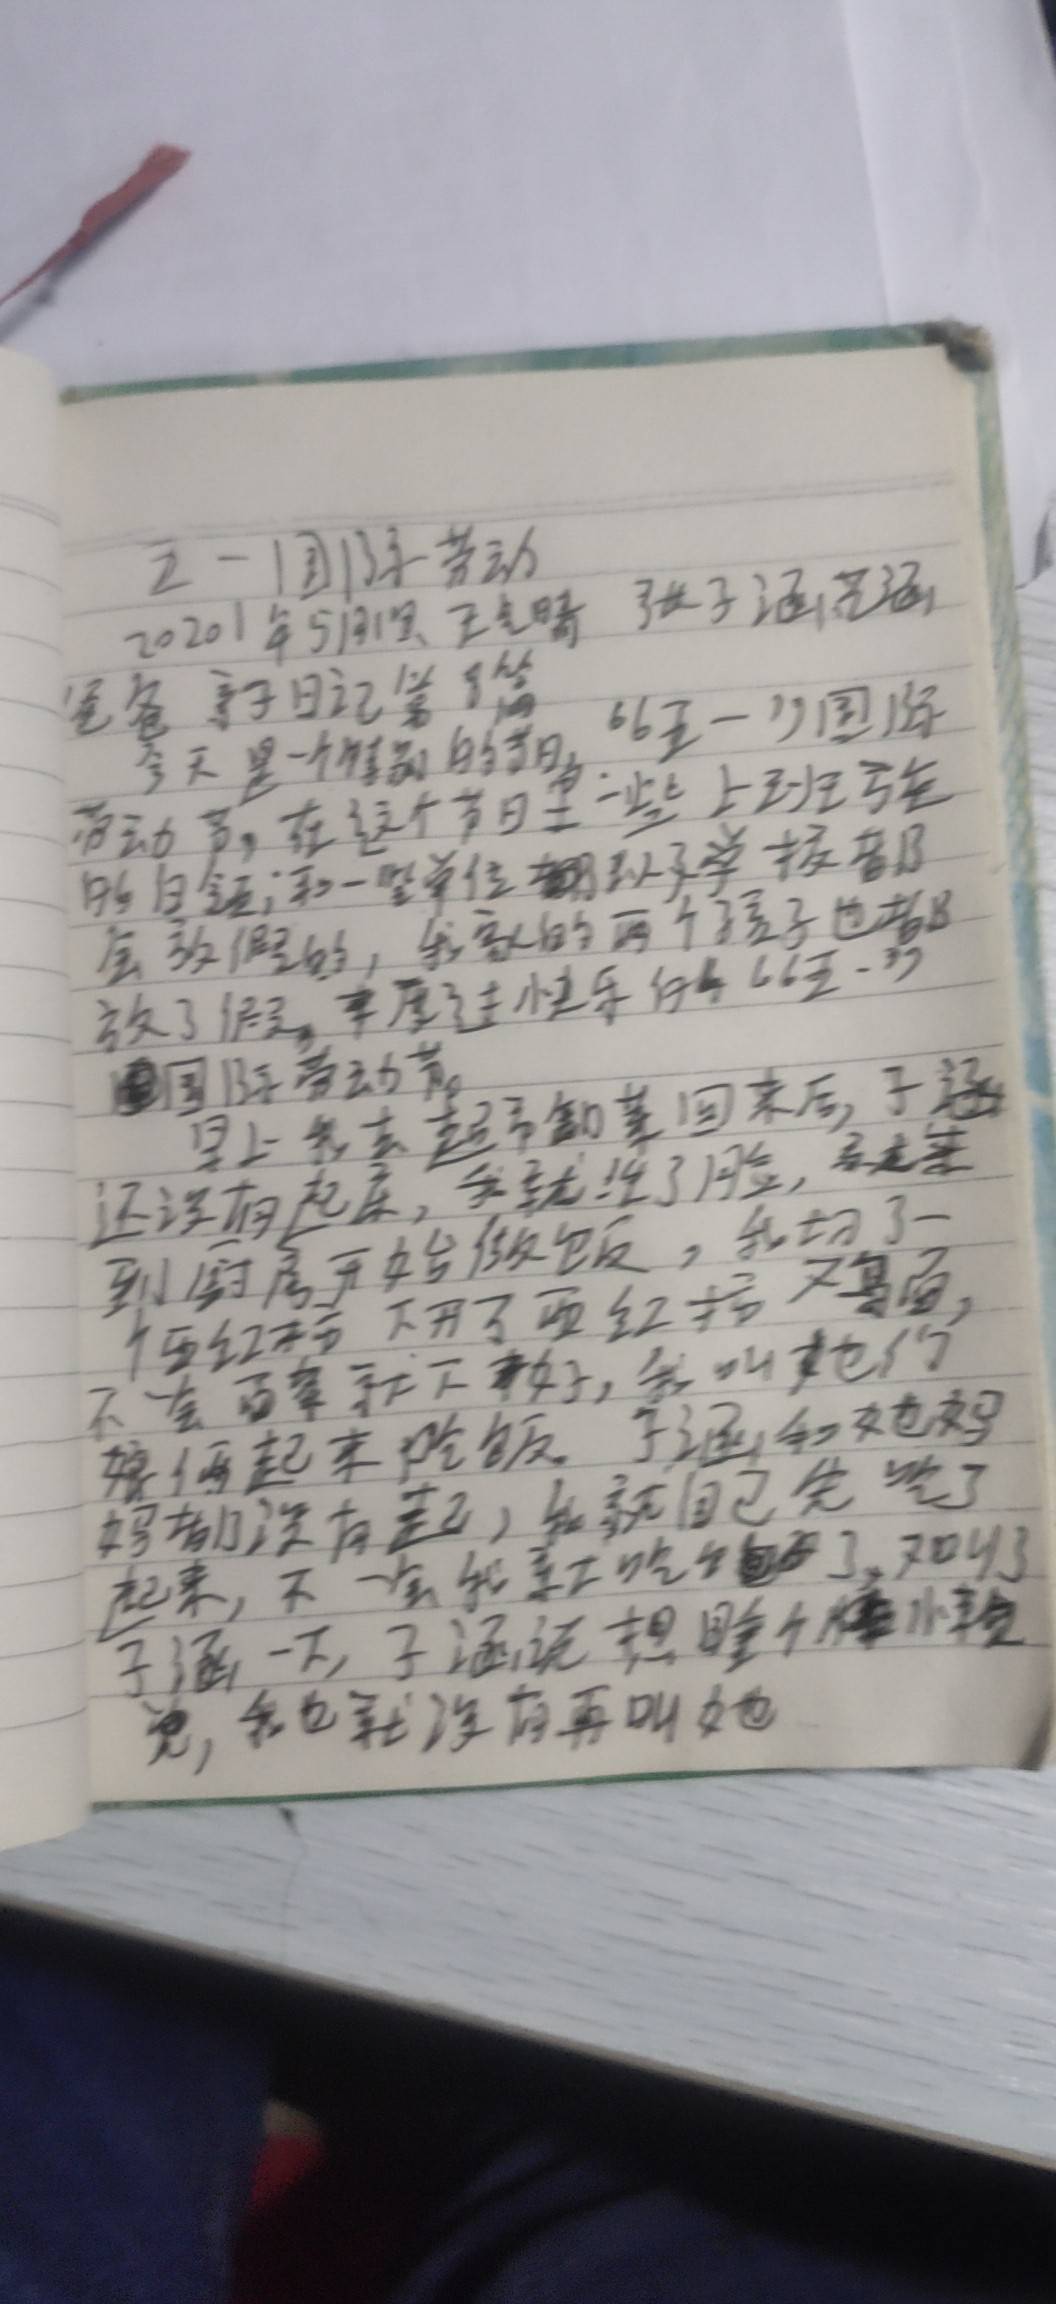 五一国际劳动
20201年5月1日 天气晴 张子涵范涵
爸爸 亲子日记第8篇
今天是一个特别的节日,“五一”国际
劳动节,在这个节日里一些上班
的白领;和一些单位 以及学校都
会放假的,我家的两个孩子也都
放了假。来度过快乐的“五一”
国际劳动节。
早上我去超市卸菜回来后,子涵
还没有起床,我就洗了脸,
到厨房开始做饭,我切了一
个西红柿 下开了西红柿 鸡蛋面,
不一会面条就下好了,我叫她们
娘俩起来吃饭。子涵和她妈
妈都没有起,我就自己先吃了
起来,不一会我就吃 了,又叫了
子涵一下,子涵说想睡个
觉,我也就没有再叫她